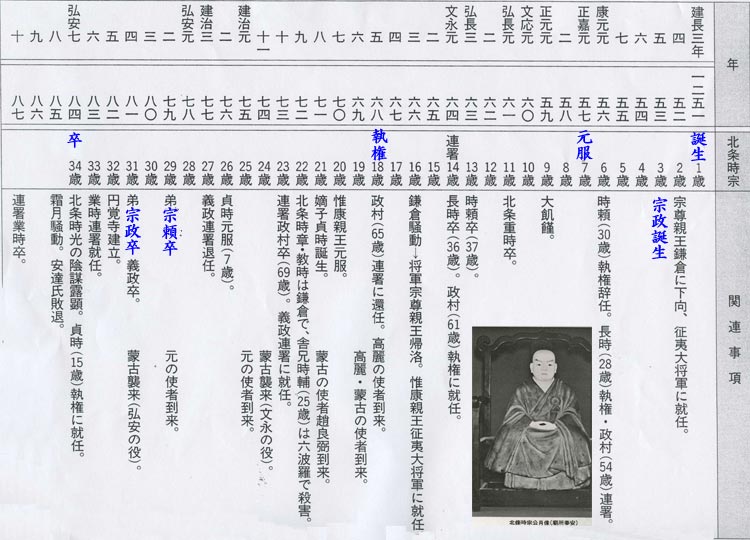 年 北条時宗 関連事項
建長三年 一二五一 誕生 1歳
四 五二 2歳 宗尊親王鎌倉に下向、征夷大将軍に就任。
五 五三 3歳 宗政誕生
六 五四 4歳
七 五五 5歳
康元元 五六 6歳 時頼(30歳)執権辞任。長時(28歳)執権・政村(54歳)連署。
正嘉元 五七 元服 7歳
二 五八 8歳
正元元 五九 9歳 大飢饉。
文応元 六〇 10歳
弘長元 六一 11歳 北条重時卒。
二 六二 12歳
弘長三 六三 13歳 時頼卒(37歳)。
文永元 六四 連署 14歳 長時卒(36歳)。政村(61歳)執権に就任。
二 六五 15歳
三 六六 16歳 鎌倉騒動→将軍宗尊親王帰洛。惟康親王征夷大将軍に就任。
四 六七 17歳
五 六八 執権 18歳 政村(65歳)連署に還任。高麗の使者到来。
六 六九 19歳 高麗・蒙古の使者到来。
七 七〇 20歳 惟康親王元服。
八 七一 21歳 嫡子貞時誕生。 蒙古の使者趙良弼到来。
九 七二 22歳 北条時章・教時は鎌倉で、舎兄時輔(25歳)は六波羅で殺害。
十 七三 23歳 連署政村卒(69歳)。義政連署に就任。
十一 七四 24歳 蒙古襲来(文永の役)。
建治元 七五 25歳 元の使者到来。
二 七六 26歳 貞時元服(7歳)。
建治三 七七 27歳 義政連署退任。
弘安元 七八 28歳
二 七九 29歳 弟宗頼卒 元の使者到来。
三 八〇 30歳
四 八一 31歳 弟宗政卒 義政卒。 蒙古襲来(弘安の役)。
五 八二 32歳 円覚寺建立。
六 八三 33歳 業時連署就任。
弘安七 八四 卒 34歳 北条時光の陰謀露顕。貞時(15歳)執権に就任。
八 八五 霜月騒動。安達氏敗退。
九 八六
十 八七 連署業時卒。